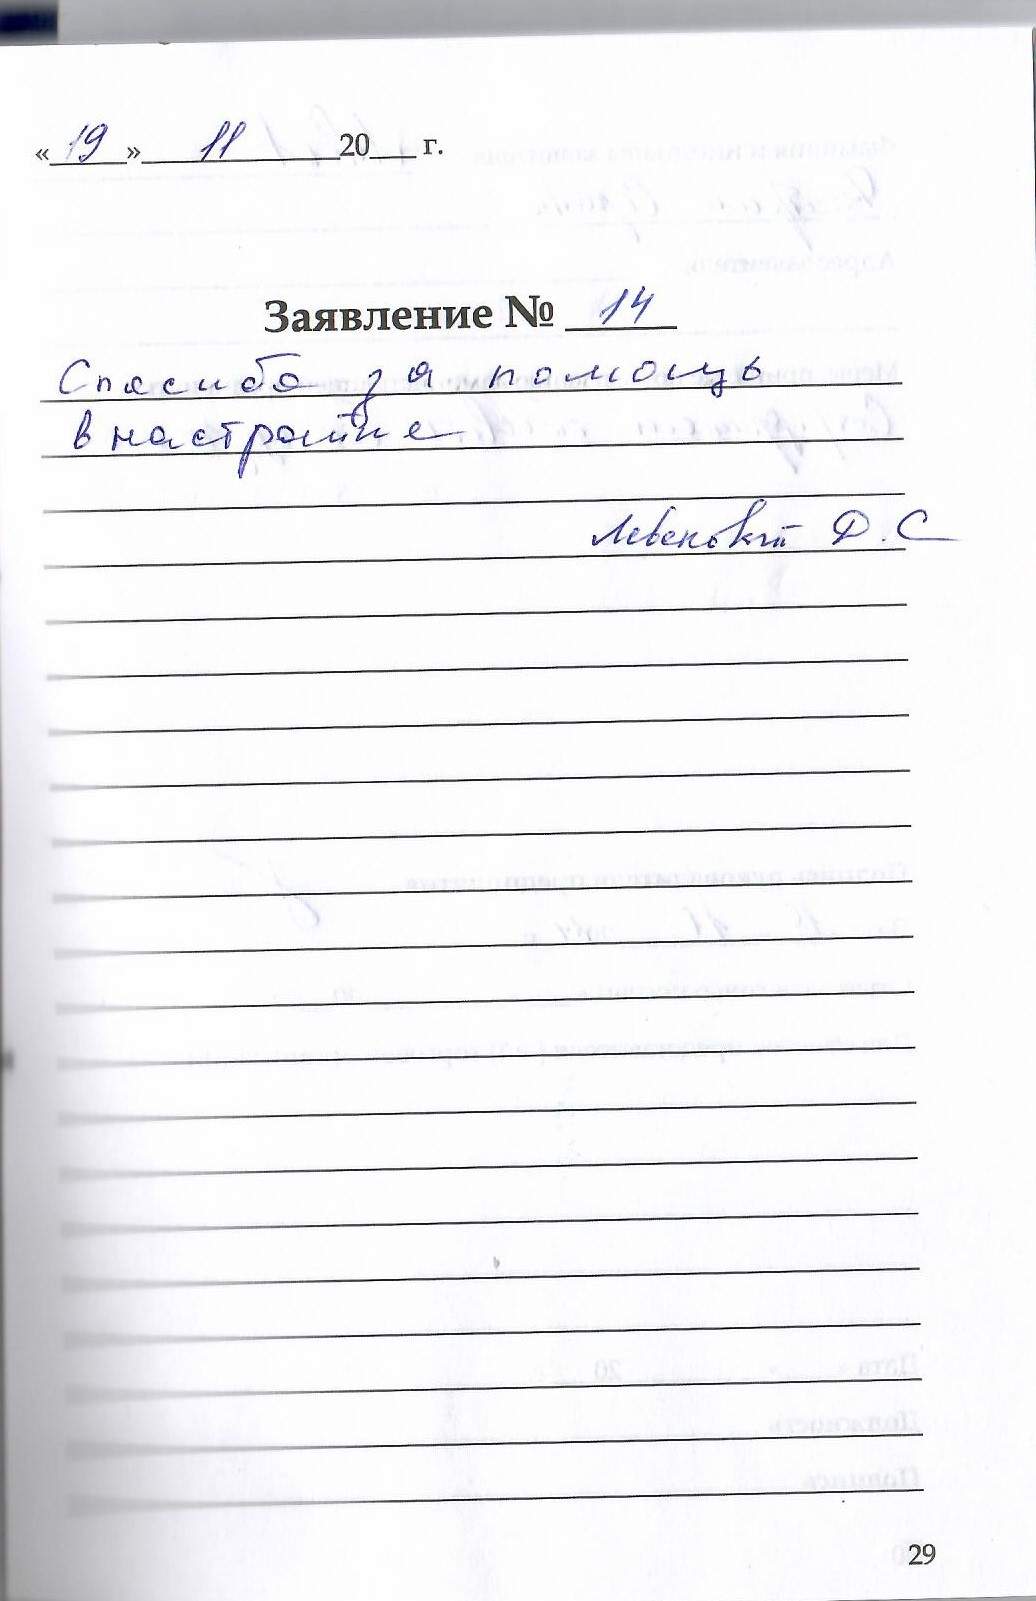 «19» 11 20 г.
Заявление № 14
Спасибо за помощь
в настройке
Д.С
29